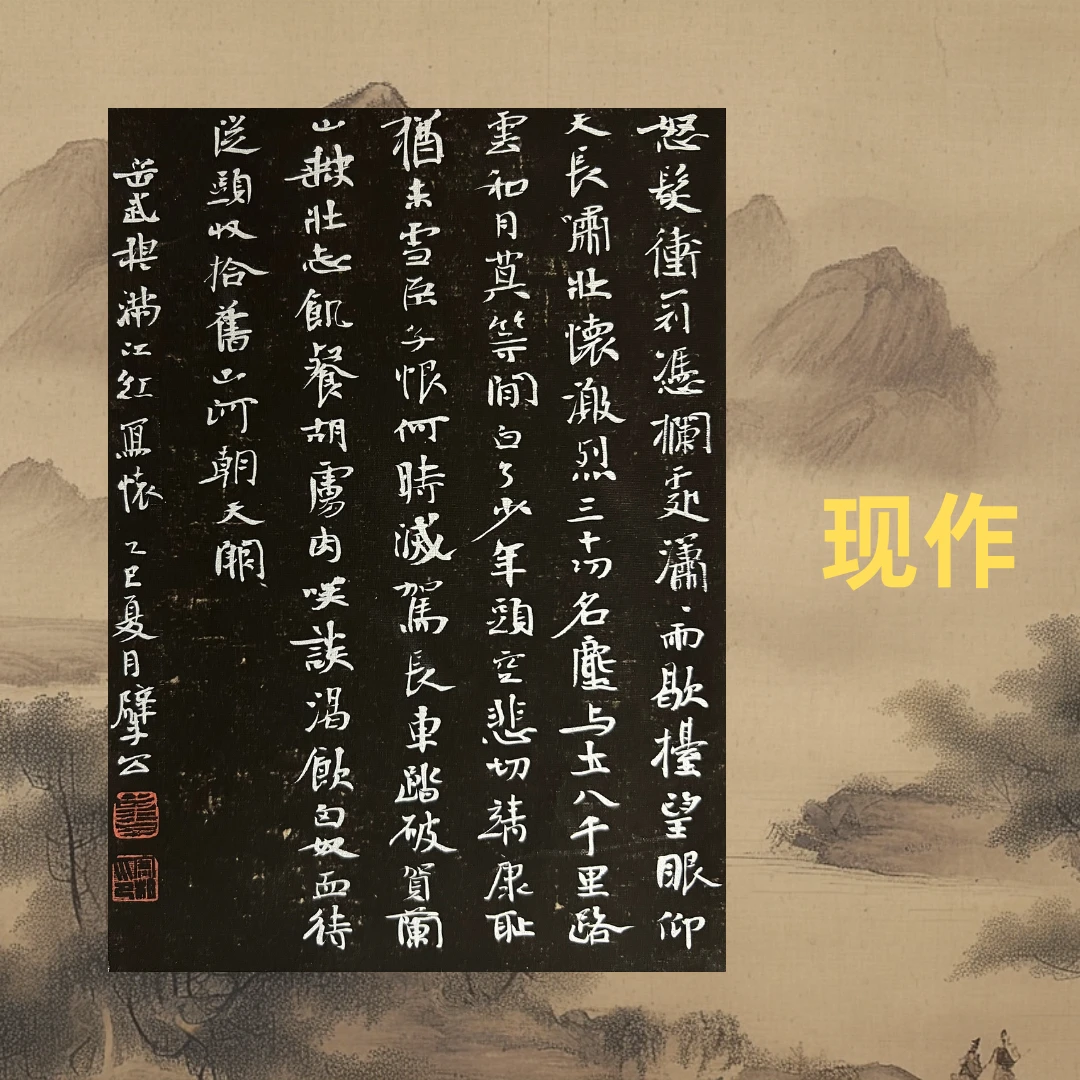 怒髮衝冠憑欄處瀟、雨歇擡望眼仰
天長嘯壯懷激烈三十功名塵与土八千里路
雲和月莫等閒白了少年頭空悲切靖康恥
猶未雪臣子恨何時滅駕長車踏破賀蘭
山缺壯志飢餐胡虜肉笑談渴飲匈奴血待
從頭收拾舊山河朝天闕
岳武穆滿江紅寫懷 乙巳夏月擘公
现作